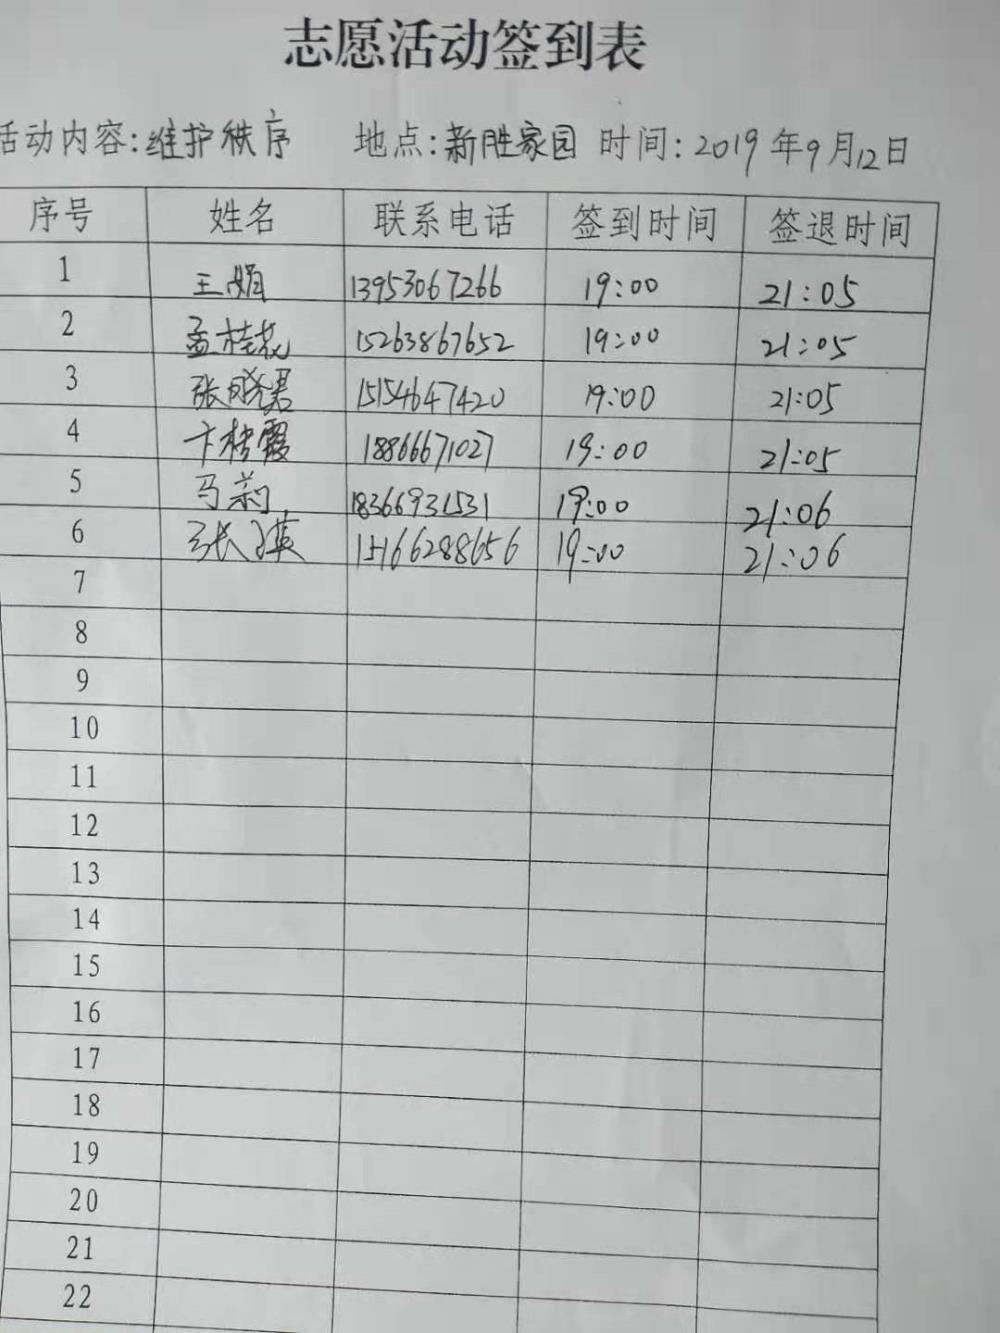 志愿活动签到表
活动内容:维护秩序 地点:新胜家园 时间:2019年9月12日
序号 姓名 联系电话 签到时间 签退时间
1 王娟 13953067266 19:00 21:05
2 孟桂花 15263867652 19:00 21:05
3 张晓君 15154647420 19:00 21:05
4 卞桂霞 18866671027 19:00 21:05
5 马莉 18366931531 19:00 21:06
6 张瑛 15166288656 19:00 21:06
7
8
9
10
11
12
13
14
15
16
17
18
19
20
21
22